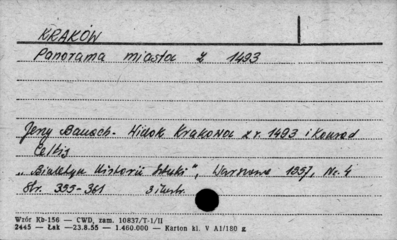 KRAKÓW
Panorama miasta z 1493
Jerzy Banach - Widok Krakowa z r. 1493 i Konrad
Celtis
"Biuletyn Historii Sztuki", Warszawa 1957, Nr. 4
Str. 355-361 3 ilustr.
Wzór Kb-156 — CWD, zam. 10837/T-1/II
2445 — Łak —23.8.55 — 1.460.000 — Karton kl. V A1/180 g